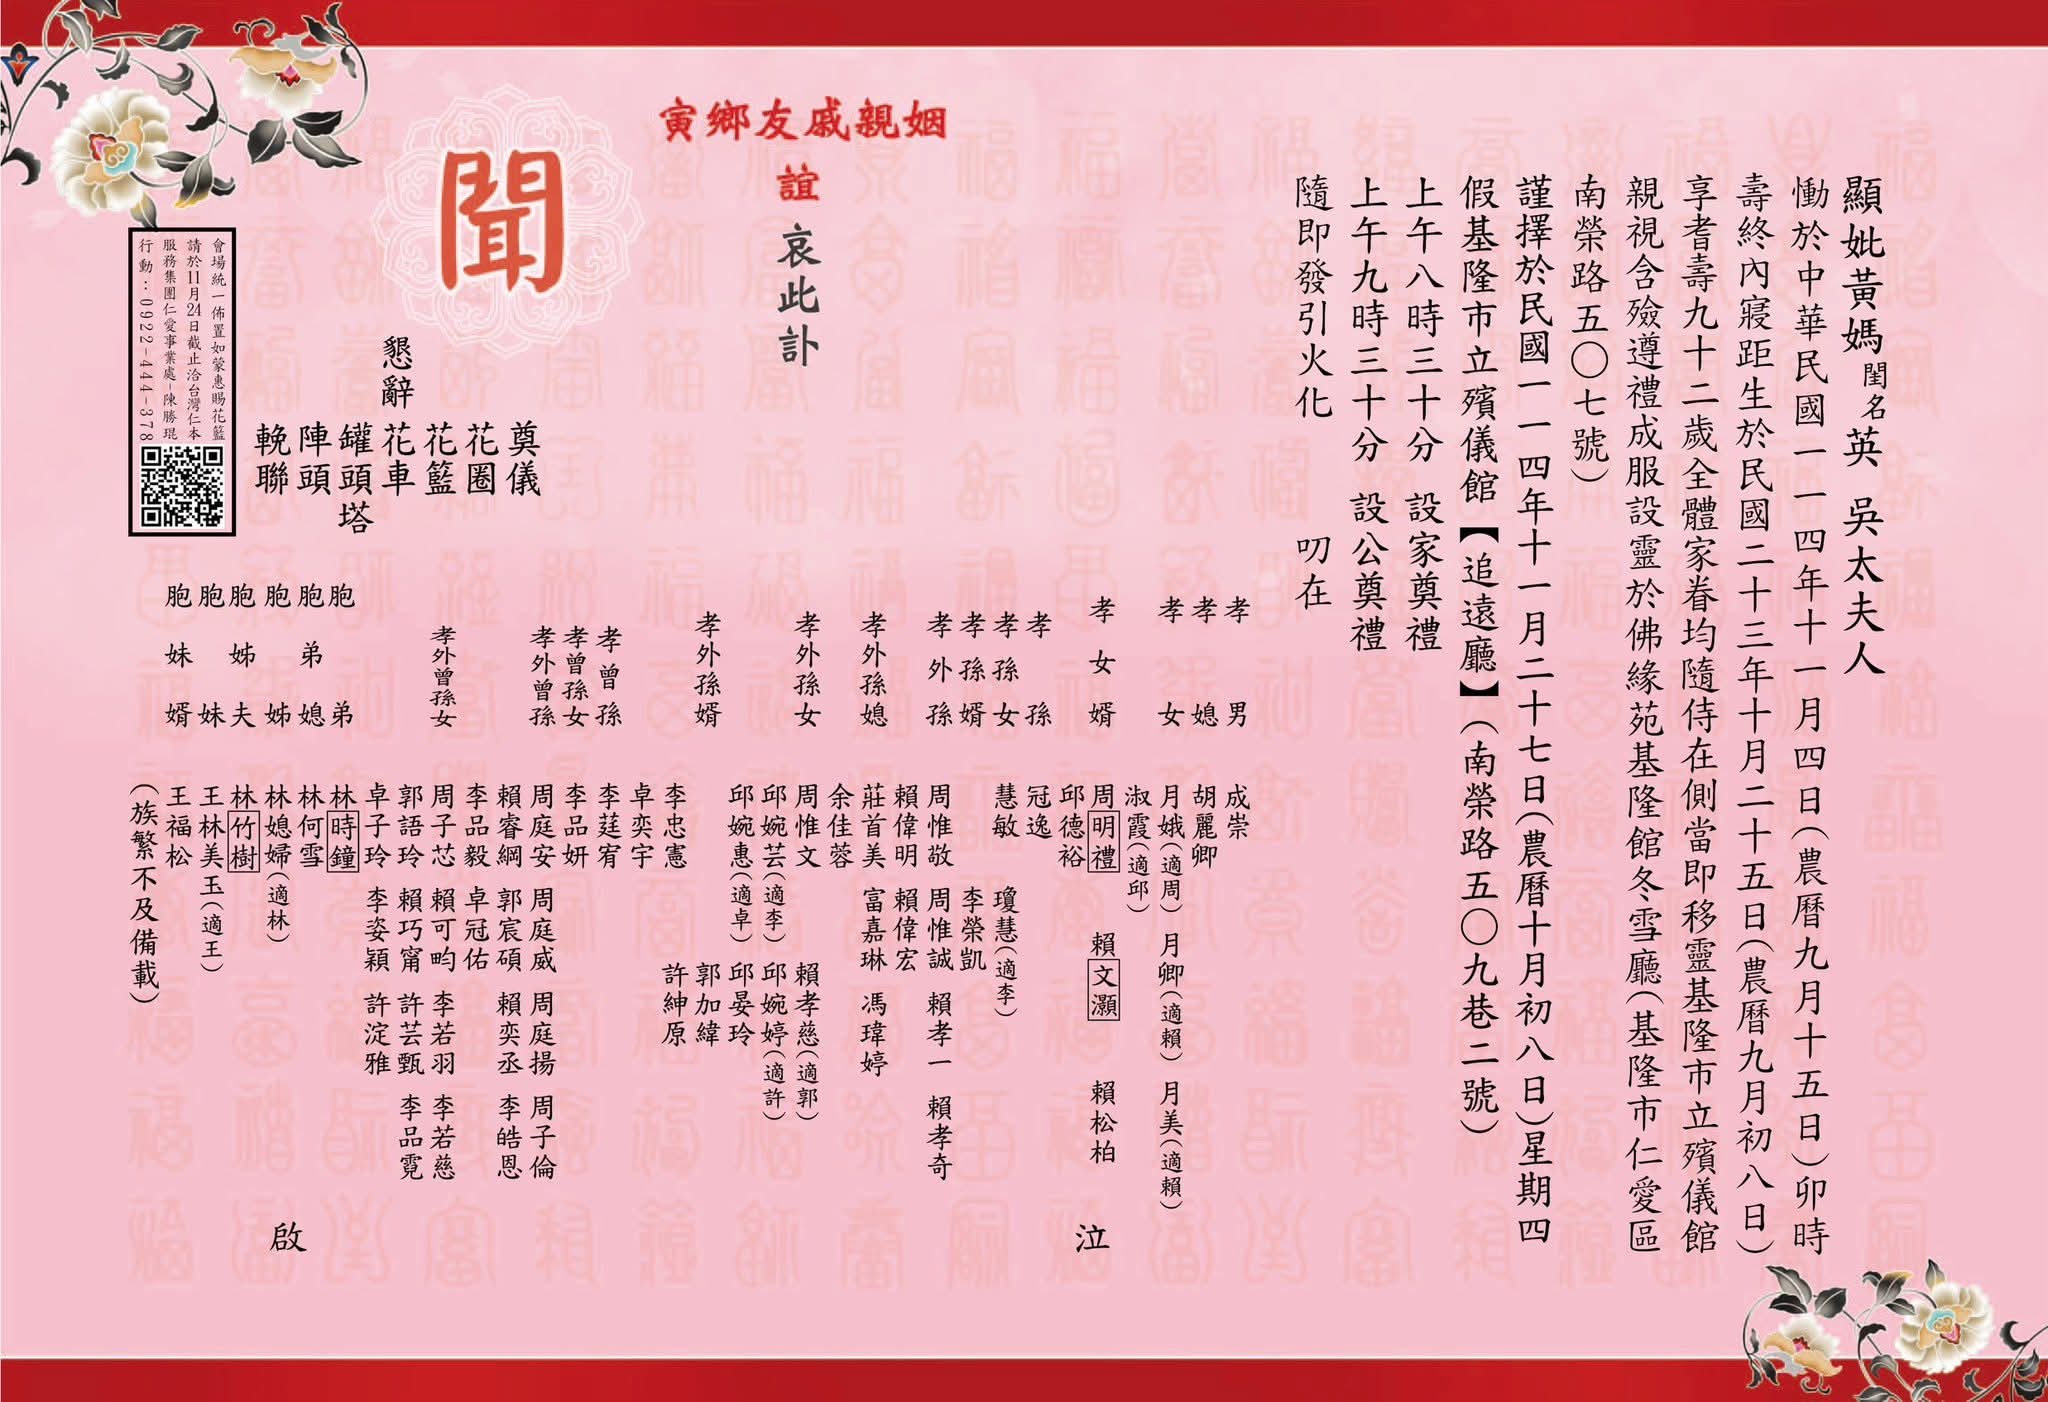 顯妣黃媽閨名英 吳太夫人
慟於中華民國一一四年十一月四日(農曆九月十五日)卯時
壽終內寢距生於民國二十三年十月二十五日(農曆九月初八日)
享耆壽九十二歲全體家眷均隨侍在側當即移靈基隆市立殯儀館
親視含殮遵禮成服設靈於佛緣苑基隆館冬雪廳(基隆市仁愛區
南榮路五〇七號)
謹擇於民國一一四年十一月二十七日(農曆十月初八日)星期四
假基隆市立殯儀館【追遠廳】(南榮路五〇九巷二號)
上午八時三十分 設家奠禮
上午九時三十分 設公奠禮
隨即發引火化 叨在
孝男 成崇
孝媳 胡麗卿
孝女 月娥(適周) 月卿(適賴) 月美(適賴)
淑霞(適邱)
孝女婿 周明禮 賴文灝 賴松柏
邱德裕
孝孫 冠逸
孝孫女 慧敏 瓊慧(適李)
孝孫婿 李榮凱
孝外孫 周惟敬 周惟誠 賴孝一 賴孝奇
賴偉明 賴偉宏
孝外孫媳 莊首美 富嘉琳 馮瑋婷
余佳蓉
孝外孫女 周惟文 賴孝慈(適郭)
邱婉芸(適李) 邱婉婷(適許)
邱婉惠(適卓) 邱晏玲
孝外孫婿 郭加緯
李忠憲 許紳原
卓奕宇
孝曾孫 李莛宥
孝曾孫女 李品妍
孝外曾孫 周庭安 周庭威 周庭揚 周子倫
賴睿綱 郭宸碩 賴奕丞 李皓恩
李品毅 卓冠佑
孝外曾孫女 周子芯 賴可畇 李若羽 李若慈
郭語玲 賴巧甯 許芸甄 李品霓
卓子玲 李姿穎 許淀雅
胞弟 林時鐘
胞弟媳 林何雪
胞姊 林媳婦(適林)
胞姊夫 林竹樹
胞妹 王林美玉(適王)
胞妹婿 王福松
(族繁不及備載)
泣
啟
姻親戚友鄉寅
誼
哀此訃
聞
懇辭
奠儀
花圈
花籃
花車
罐頭塔
陣頭
輓聯
會場統一佈置如蒙惠賜花籃
請於11月24日截止洽台灣仁本
服務集團仁愛事業處-陳勝琨
行動:0922-444-378